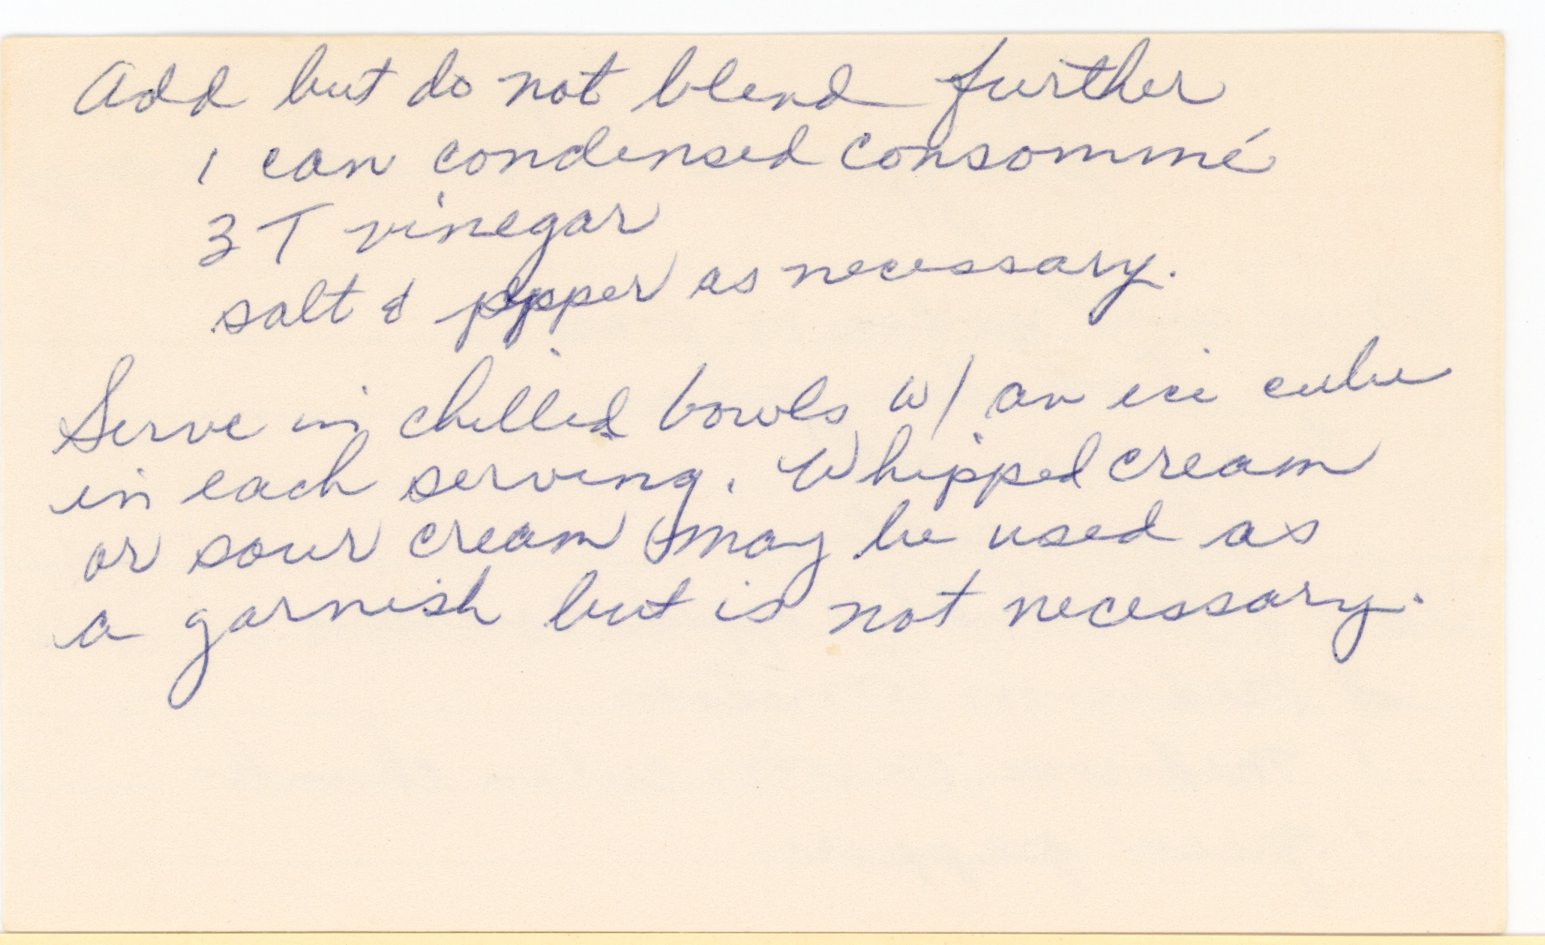 Add but do not blend further
1 can condensed consommé
3 T vinegar
salt & pepper as necessary.
Serve in chilled bowls w/ an ice cube
in each serving. Whipped cream
or sour cream may be used as
a garnish but is not necessary.